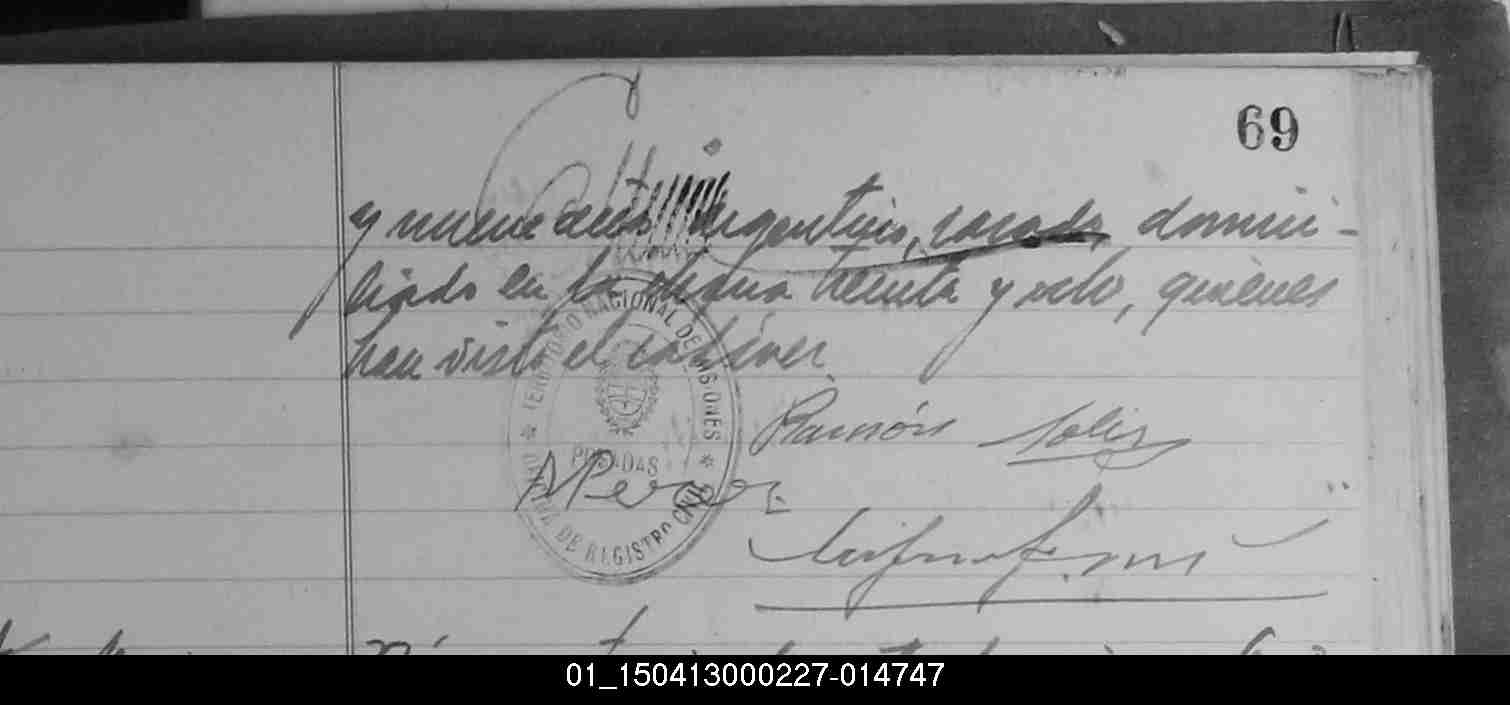 69
y nueve años, argentino, casado, domici-
liado en la chacra treinta y ocho, quienes
han visto el cadáver.
TERRITORIO NACIONAL DE MISIONES
POSADAS
OFICINA DE REGISTRO CIVIL
Ramón Solis
Perez
01_150413000227-014747